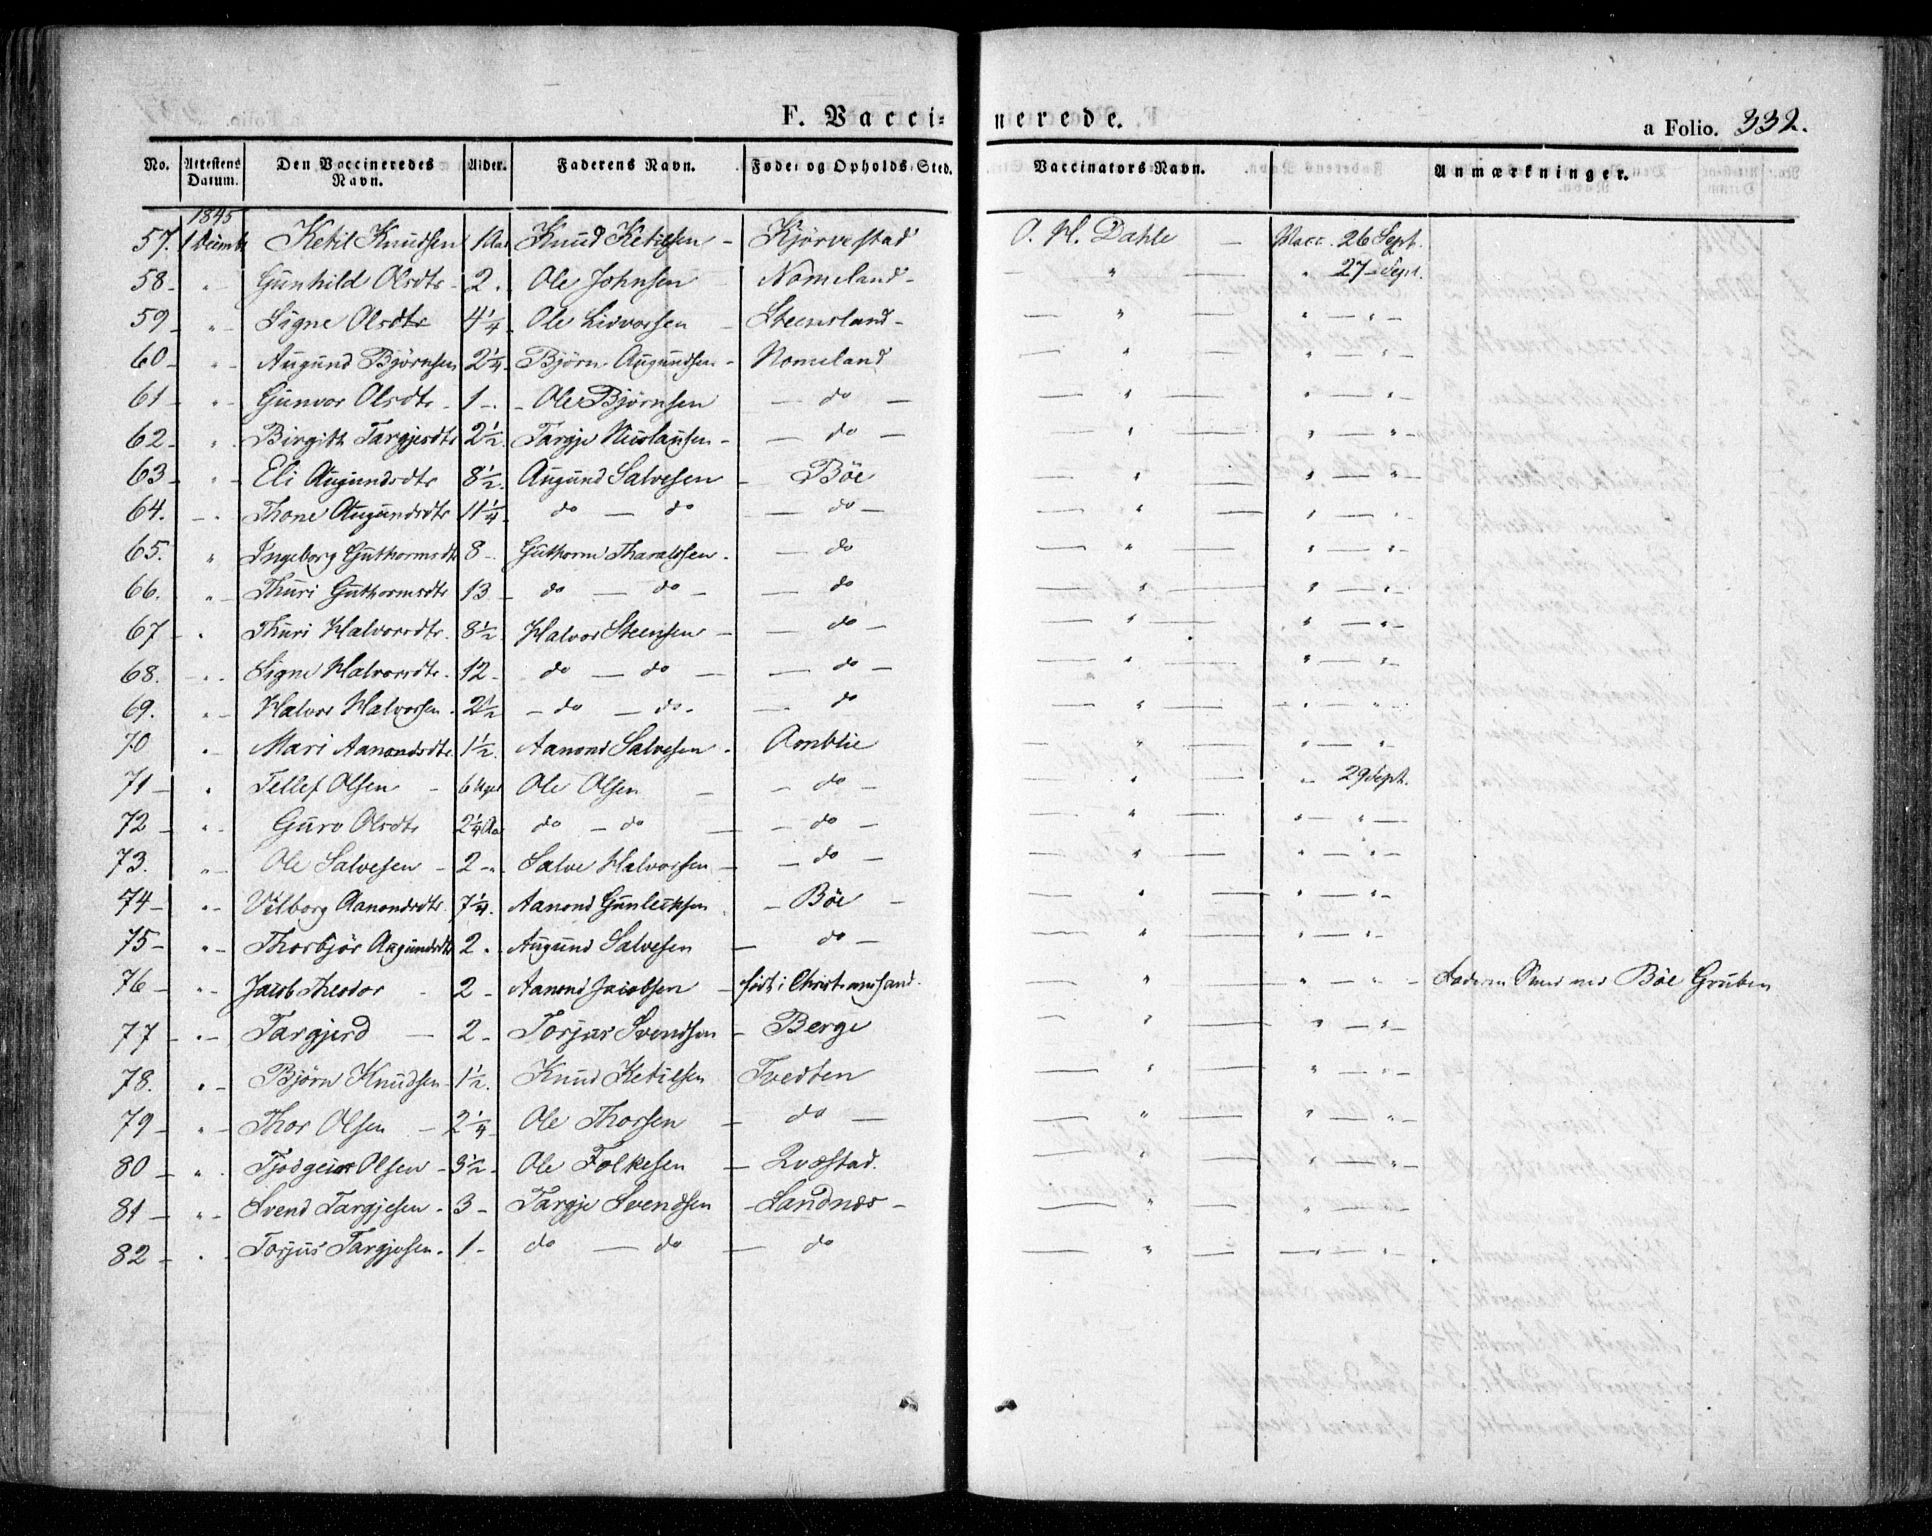 F. Vacci- nerede.
a Folio. 332.
No. Attestens Datum. Den Vaccineredes Navn. Alder. Faderens Navn. Føde- og Opholds-Sted. Vaccinators Navn. Anmærkninger.
1845
57. 1 Decemb Ketil Knudsen 1 Aar Knud Ketilsen - Kjörvestad O. H. Dahle - Vacc. 26 Sept.
58 - " - Gunhild Olsdtr - 2. Ole Johnsen Nomeland - — " — " 27 Sept.
59 - " - Signe Olsdtr 4 1/4 Ole Lidvorsen - Steensland - — " — " — " -
60 - " - Augund Björnsen 2 1/4 Björn Augundsen - Nomeland — " — " — " -
61 - " - Gunvor Olsdtr - 1 - - Ole Björnsen — do — — " — " — " -
62 - " Birgith Targjesdtr 2 1/2 Targje Nielausen - — do — — " — " — " -
63 - " - Eli Augundsdtr 8 1/2. Augund Salvesen - Böe — " — " — " -
64. - " Thone Augundsdtr 11 1/4 do — do — do — — " — " — " -
65. " Ingeborg Guthormsdtr 8 - Guthorm Tharaldsen. — do — " — " — " -
66. " - Thuri Guthormsdtr 13 - do — do - — do — " — " — " -
67 - " Thuri Halvorsdtr. 8 1/2. Halvor Steensen - — do - — " — " — " -
68. - " - Signe Halvorsdtr. 12 - do — do — do — — " — " — " -
69. " - Halvor Halvorsen. 2 1/2 - do — do. — do — " — " — " -
70 " Mari Aanondsdtr. 1 1/2. Aanond Salvesen - Omblie — " — " — " -
71 - " Tellef Olsen - 6 Uger Ole Olsen — — do — — " — " 29 Sept.
72 - " - Guro Olsdtr 2 1/4 Aar do — do — — do — — " — " — " -
73. " - Ole Salvesen - 2 - " Salve Halvorsen — — do — — " — " — " -
74 - " - Vilborg Aanondsdtr. 7 1/4. Aanond Gunleiksen - Böe - — " — " — " -
75 - " - Thorbjör Augundsdtr 2 " Augund Salvesen — do — — " — " — " -
76 " - Jacob Theodor - 2 - Aanond Jacobsen - födt i Christiansand. — " — " — " - Faderen Smed ved Böe Gruben
77 - " - Targjerd — 2 - Torjus Svendsen - Berge — " — " — " -
78. " - Björn Knudsen 1 1/2. Knud Ketilsen Tvedten — " — " — " -
79 - " - Thor Olsen - 2 1/4 - Ole Thorsen - do — — " — " — " -
80 - " Tjodgeir Olsen - 3 1/2 - Ole Folkesen - Qvæstad. — " — " — " -
81 - " - Svend Targjesen - 3 - Targje Svendsen - Sandnæs - — " — " — " -
82 - " Torjus Targjesen. 1 - do — do — do — " — " — " -